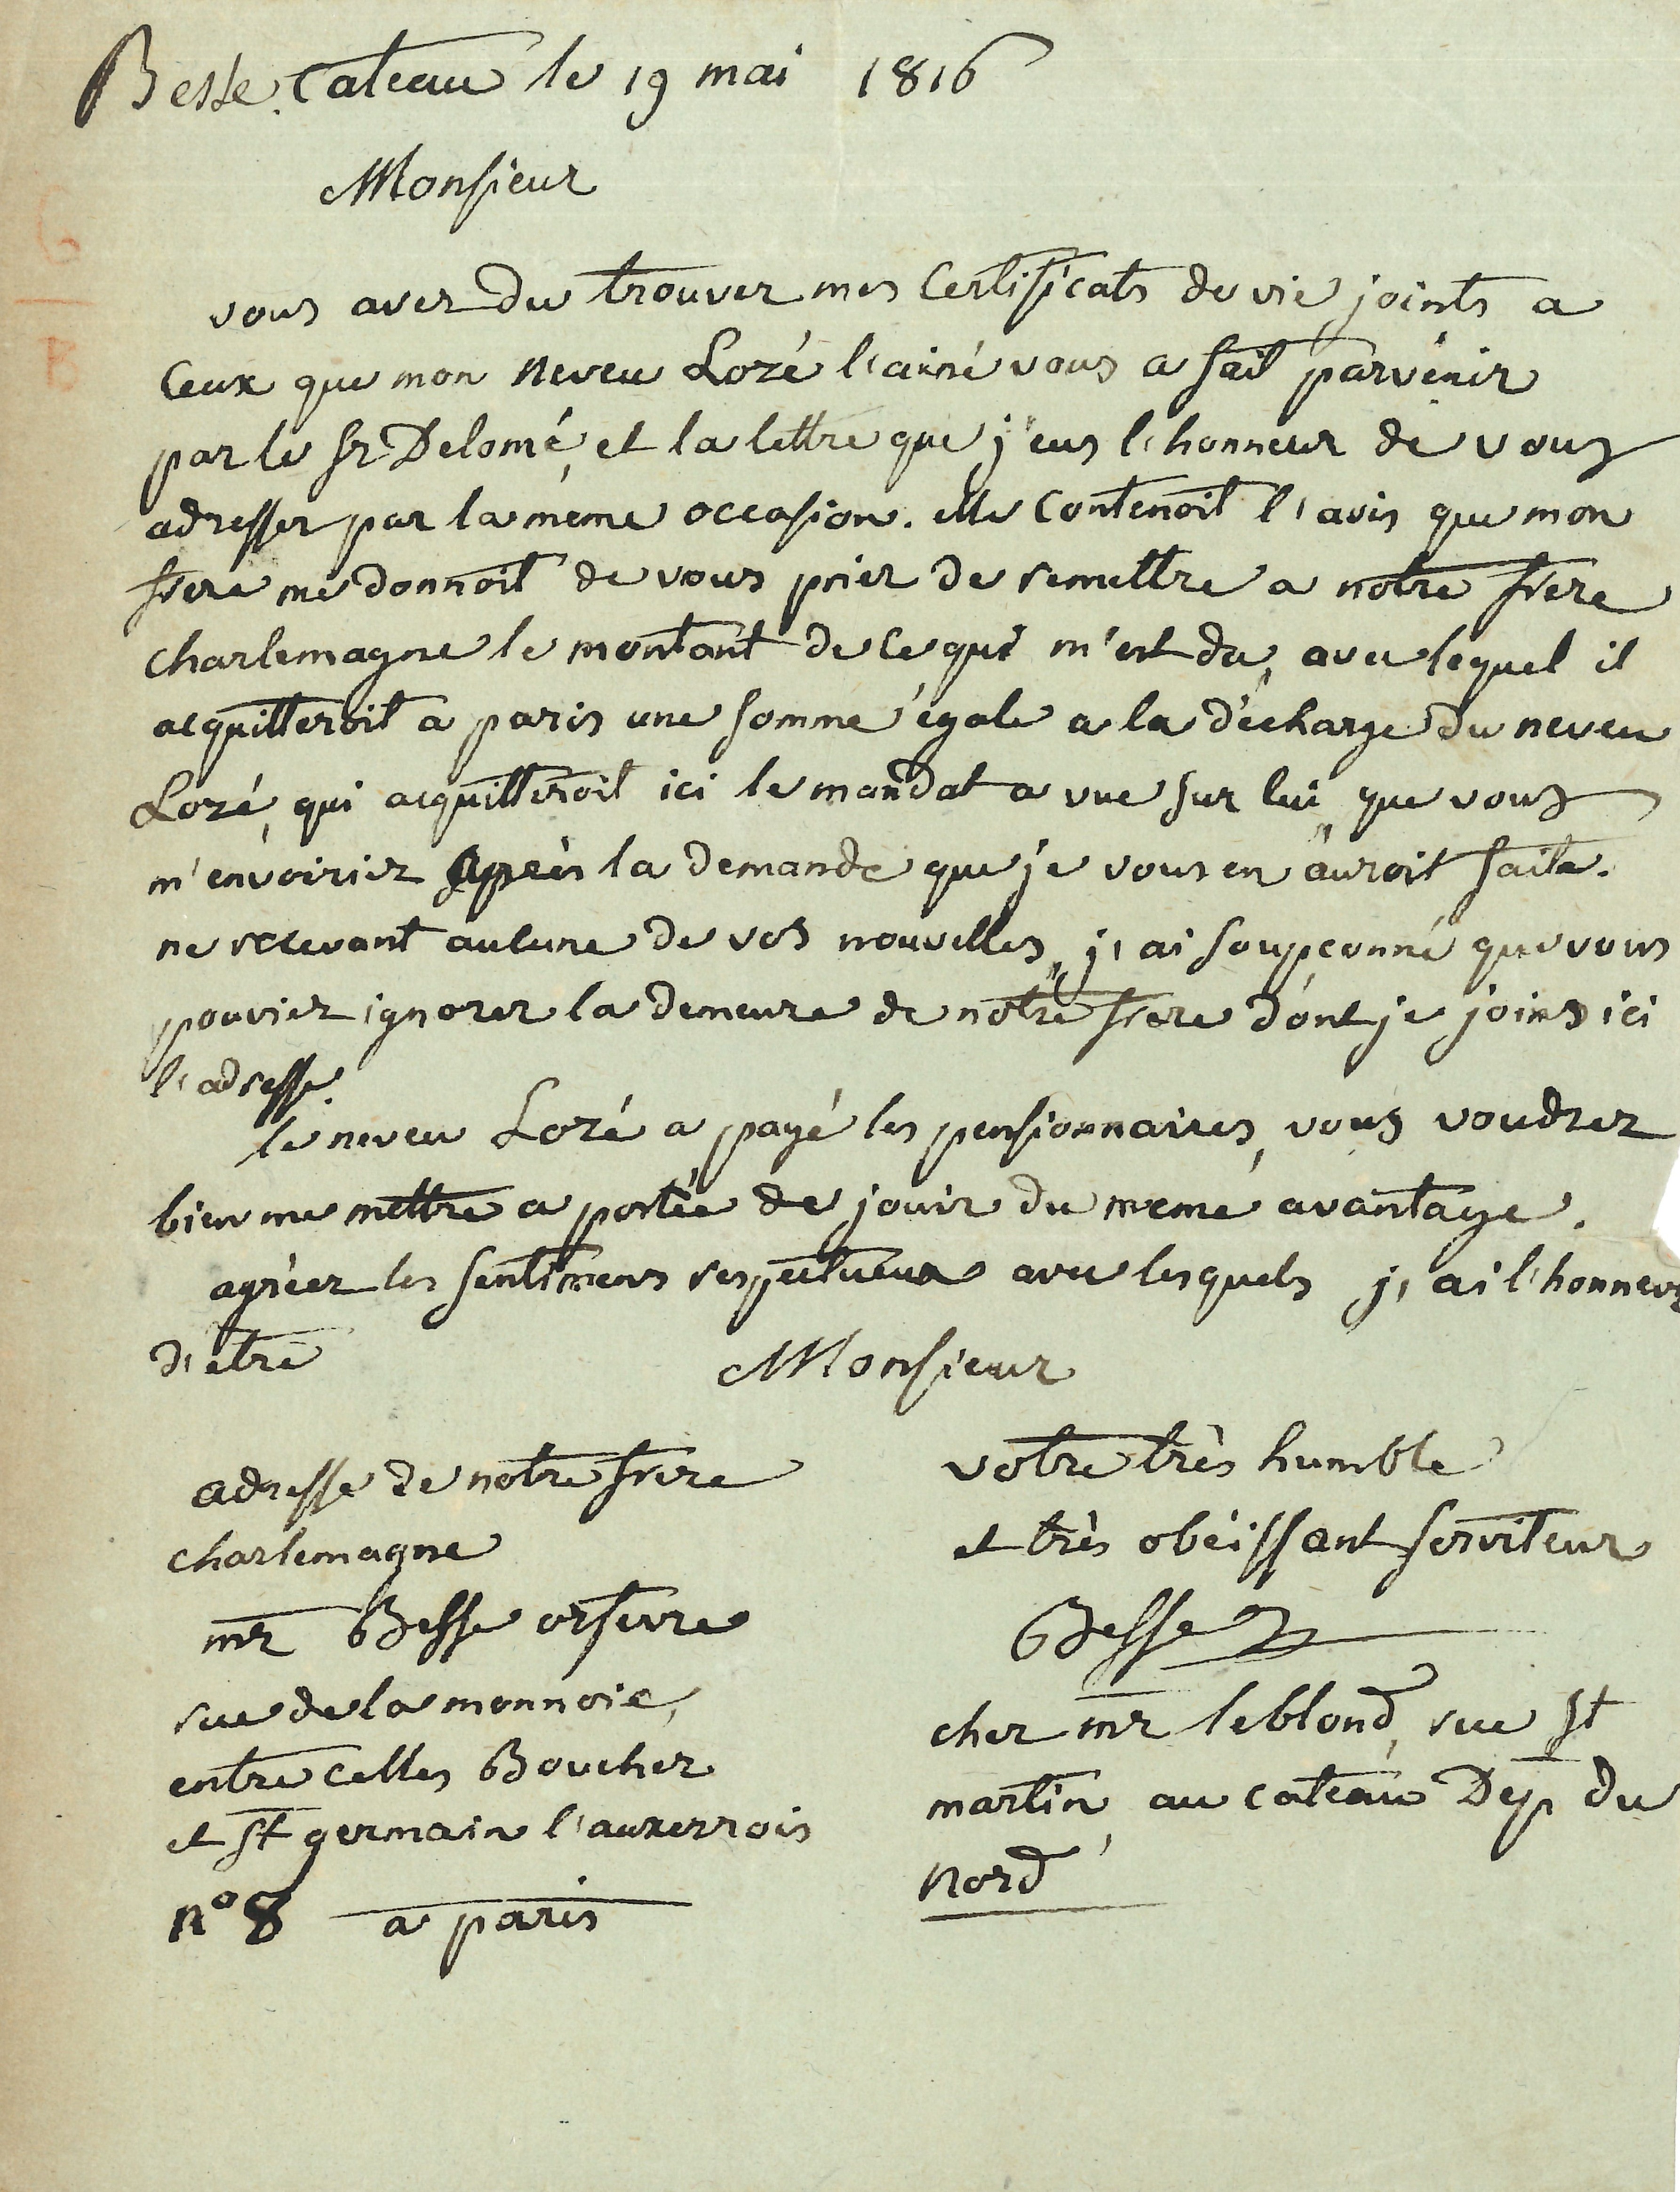 Besse. Cateau le 19 mai 1816
Monsieur
G
B
vous avez du trouver mes Certificats de vie joints a
Ceux que mon neveu Lozé l'ainé vous a fait parvenir
par le sr Delomé, et la lettre que j'eus l'honneur de vous
adresser par la même occasion. elle Contenoit l'avis que mon
frere me donnoit de vous prier de remettre a notre frere
charlemagne le montant de Ce qui m'est du, avec lequel il
acquitteroit a paris une somme égale a la décharge du neveu
Lozé, qui acquitteroit ici le mandat a vue sur lui, que vous
m'envoiriez après la demande que je vous en auroit faite.
ne recevant aucune de vos nouvelles, j'ai soupçonné que vous
pouviez ignorer la demeure de notre frere dont je joins ici
l'adresse.
le neveu Lozé a payé les pensionnaires, vous voudrez
bien me mettre a portée de jouir du meme avantage.
agréez les sentimens respectueux avec lesquels j'ai l'honneur
d'etre Monsieur
votre très humble
et très obéissant serviteur
Besse
cher mr leblond, rue st
martin, au cateau Dep. du
nord
adresse de notre frere
charlemagne
mr Besse orfevre
rue de la monnoie,
entre celles Boucher
et st germain l'auxerrois
n° 8 a paris